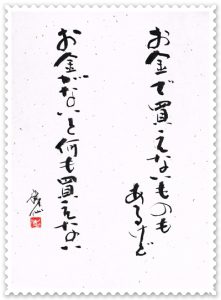 お金で買えないものも
あるけど
お金がないと何も買えない